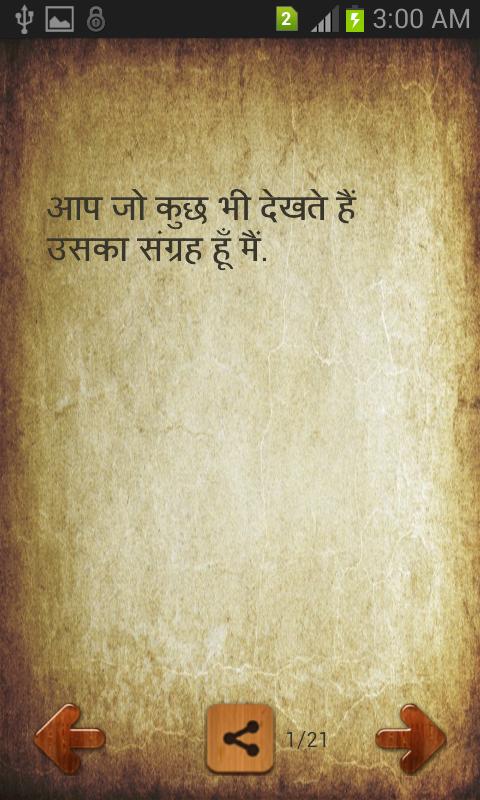 2 3:00 AM
आप जो कुछ भी देखते हैं
उसका संग्रह हूँ मैं.
1/21